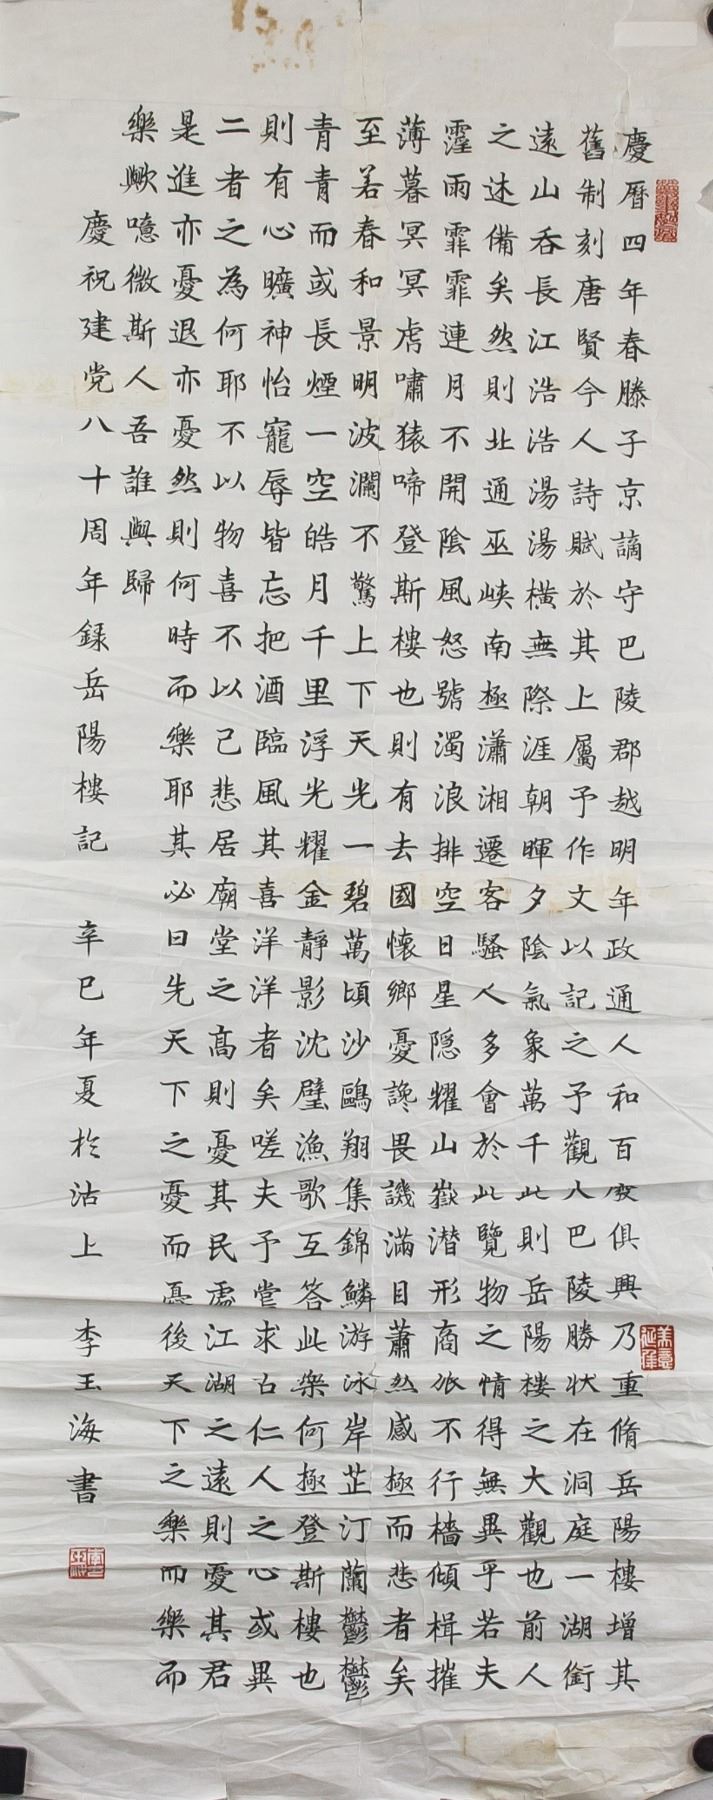 慶曆四年春滕子京謫守巴陵郡越明年政通人和百廢俱興乃重脩岳陽樓增其
舊制刻唐賢今人詩賦於其上屬予作文以記之予觀夫巴陵勝狀在洞庭一湖銜
遠山吞長江浩浩湯湯橫無際涯朝暉夕陰氣象萬千此則岳陽樓之大觀也前人
之述備矣然則北通巫峽南極瀟湘遷客騷人多會於此覽物之情得無異乎若夫
霪雨霏霏連月不開陰風怒號濁浪排空日星隱耀山嶽潛形商旅不行檣傾楫摧
薄暮冥冥虎嘯猿啼登斯樓也則有去國懷鄉憂讒畏譏滿目蕭然感極而悲者矣
至若春和景明波瀾不驚上下天光一碧萬頃沙鷗翔集錦鱗游泳岸芷汀蘭鬱鬱
青青而或長煙一空皓月千里浮光耀金靜影沈璧漁歌互答此樂何極登斯樓也
則有心曠神怡寵辱皆忘把酒臨風其喜洋洋者矣嗟夫予嘗求古仁人之心或異
二者之為何耶不以物喜不以己悲居廟堂之高則憂其民處江湖之遠則憂其君
是進亦憂退亦憂然則何時而樂耶其必曰先天下之憂而憂後天下之樂而樂而
樂歟噫微斯人吾誰與歸
慶祝建党八十周年錄岳陽樓記 辛巳年夏於沽上 李玉海書